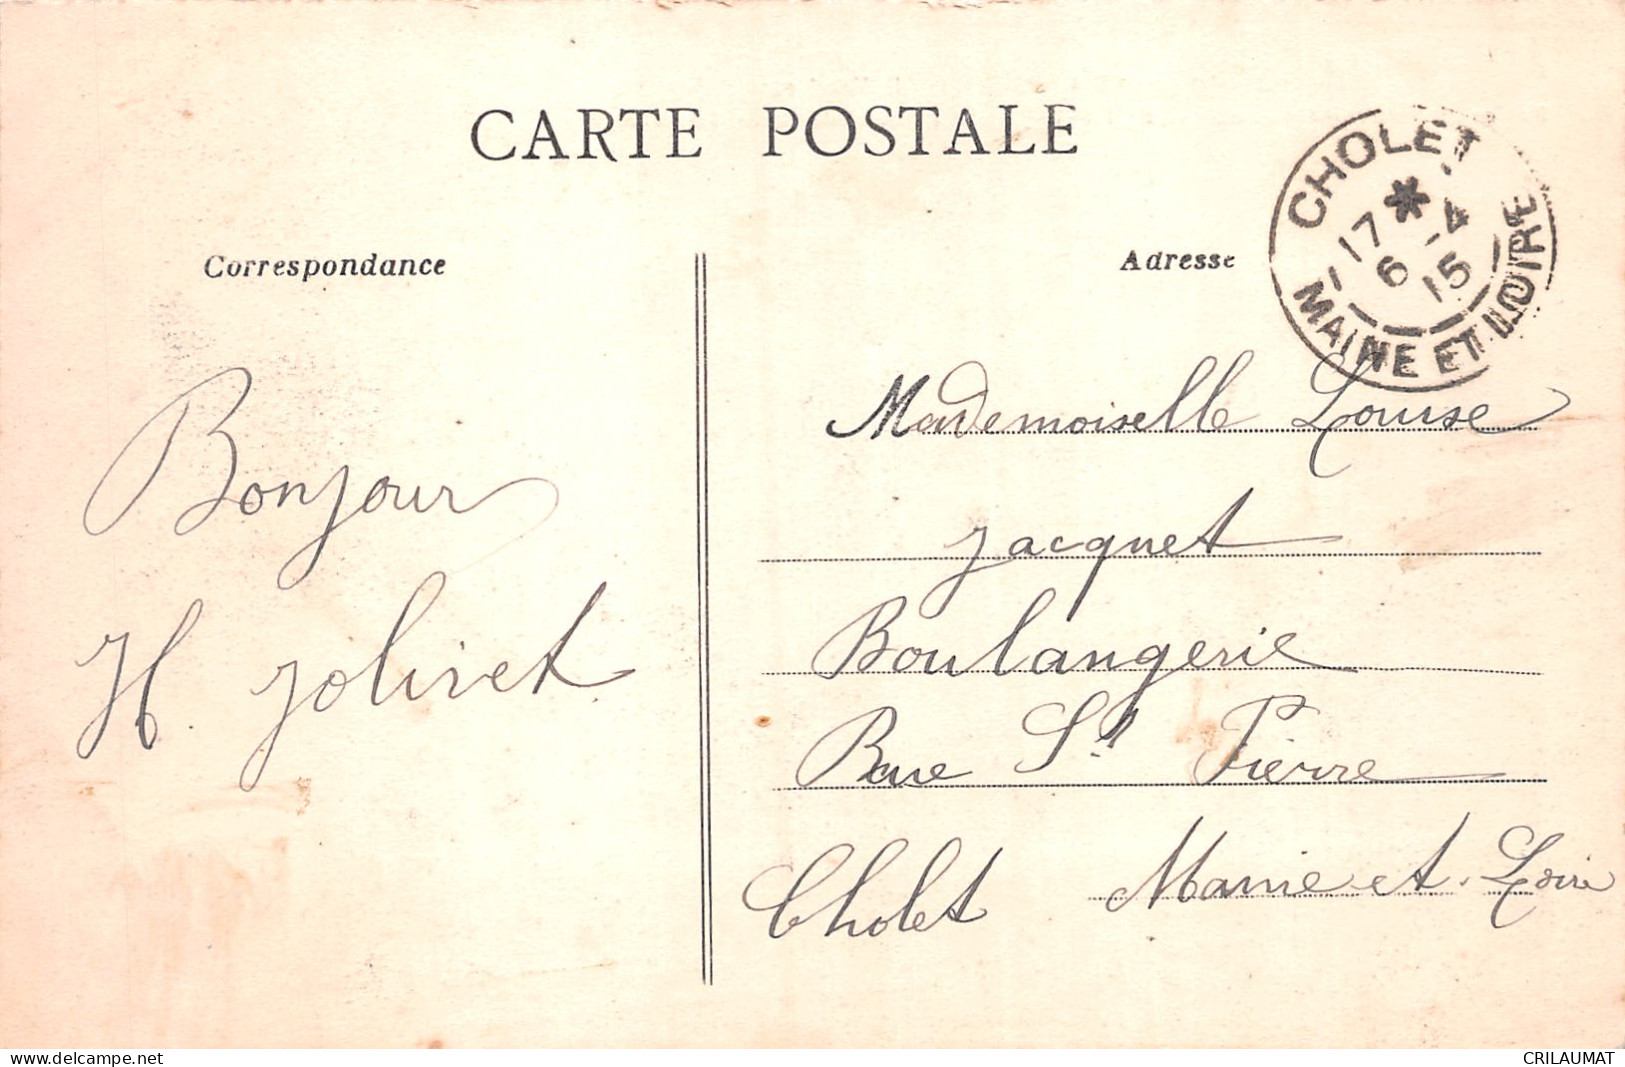 CARTE POSTALE
Correspondance
Adresse
CHOLET
17 * 6 -4 15
MAINE ET LOIRE
Bonjour
H. Jolivet
Mademoiselle Louise
Jacquet
Boulangerie
Rue St Pierre
Cholet Maine et Loire
www.delcampe.net
CRILAUMAT